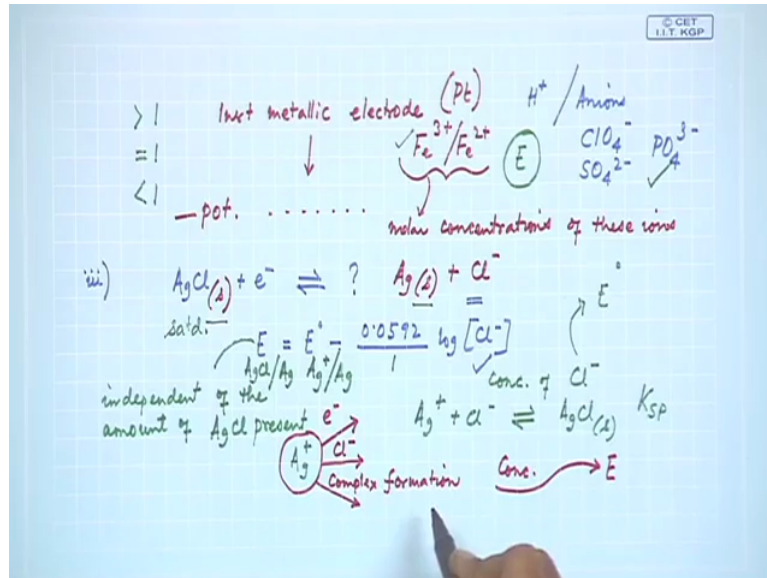 © CET
I.I.T. KGP
> 1 Inert metallic electrode (Pt) H⁺ / Anions
= 1 Fe³⁺/Fe²⁺ E ClO₄⁻ PO₄³⁻
< 1 SO₄²⁻
— pot. ....... molar concentrations of these ions
iii) AgCl(s) + e⁻ ⇌ ? Ag(s) + Cl⁻ E°
satd.
E = E° - 0.0592/1 log [Cl⁻]
AgCl/Ag Ag⁺/Ag conc. of Cl⁻
independent of the
amount of AgCl present Ag⁺ + Cl⁻ ⇌ AgCl(s) Ksp
e⁻
Ag⁺ Cl⁻
Complex formation Conc. → E